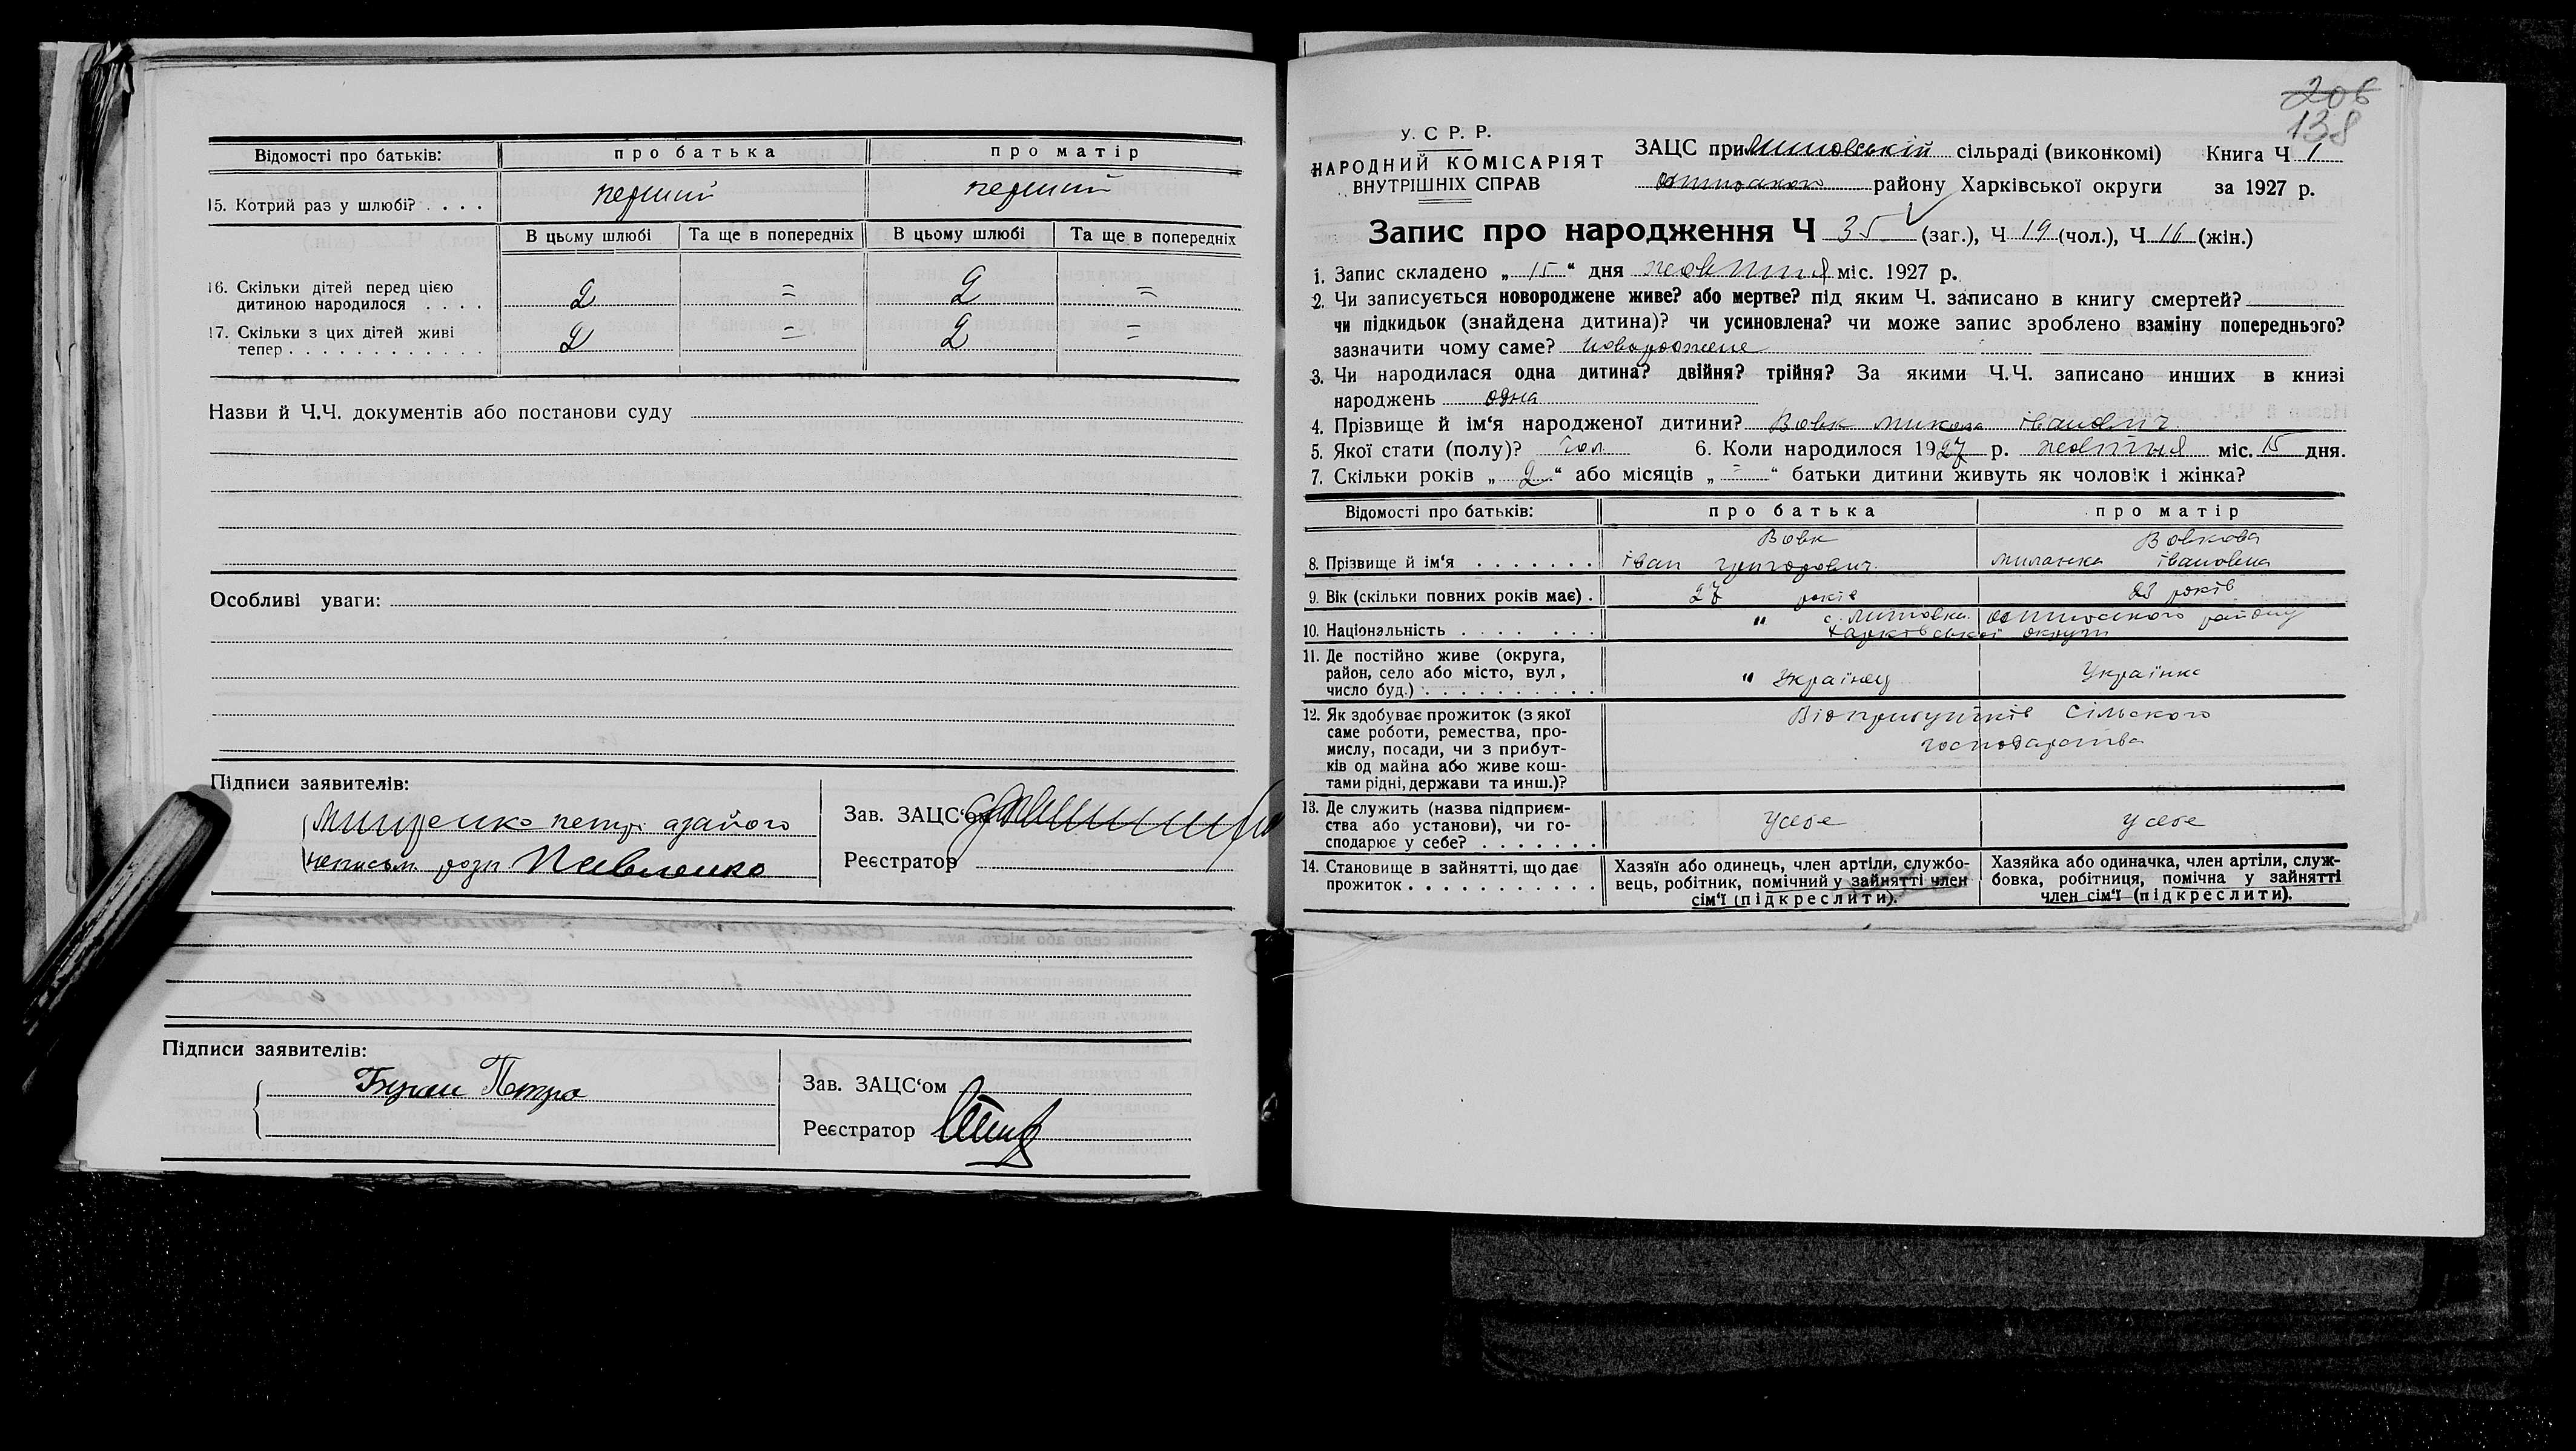 Відомості про батьків: про батька про матір
15. Котрий раз у шлюбі? . . . . перший перший
В цьому шлюбі Та ще в попередніх В цьому шлюбі Та ще в попередніх
16. Скільки дітей перед цією
дитиною народилося . . . . 2 = 2 =
17. Скільки з цих дітей живі
тепер . . . . . . . . . . . . 2 = 2 =
Назви й Ч.Ч. документів або постанови суду
Особливі уваги:
Підписи заявителів:
Мищенко петро
неписьм. Павленко
Зав. ЗАЦС'ом
Реєстратор
Підписи заявителів:
Петро
Зав. ЗАЦС'ом
Реєстратор
206
138
У. С Р. Р.
НАРОДНИЙ КОМІСАРІЯТ
ВНУТРІШНІХ СПРАВ
ЗАЦС при сільраді (виконкомі) Книга Ч 1
району Харківської округи за 1927 р.
Запис про народження Ч 35 (заг.), Ч 19 (чол.), Ч 16 (жін.)
1. Запис складено „ 15 “ дня жовтня міс. 1927 р.
2. Чи записується новороджене живе? або мертве? під яким Ч. записано в книгу смертей?
чи підкидьок (знайдена дитина)? чи усиновлена? чи може запис зроблено взаміну попереднього?
зазначити чому саме? новорожене
3. Чи народилася одна дитина? двійня? трійня? За якими Ч.Ч. записано инших в книзі
народжень одна
4. Прізвище й ім'я народженої дитини? Вовк Микола івановіч
5. Якої стати (полу)? чол. 6. Коли народилося 1927 р. жовтня міс. 15 дня.
7. Скільки років „ 2 “ або місяців „ = “ батьки дитини живуть як чоловік і жінка?
Відомості про батьків: про батька про матір
8. Прізвище й ім'я . . . . . . . Вовк Вовкова
іван григорович миланка івановна
9. Вік (скільки повних років має) . 27 років 23 років
10. Національність . . . . . . . " с. району
Харківської округи
11. Де постійно живе (округа,
район, село або місто, вул,
число буд.) . . . . . . . . . . " Українец Українка
12. Як здобуває прожиток (з якої
саме роботи, ремества, про-
мислу, посади, чи з прибут-
ків од майна або живе кош-
тами рідні, держави та инш.)?
Відприбутків сільского
господарства
13. Де служить (назва підприєм-
ства або установи), чи го-
сподарює у себе? . . . . . . . усебе усебе
14. Становище в зайнятті, що дає
прожиток . . . . . . . . . . .
Хазяїн або одинець, член артіли, службо-
вець, робітник, помічний у зайнятті член
сім'ї (підкреслити).
Хазяйка або одиначка, член артіли, служ-
бовка, робітниця, помічна у зайнятті
член сім'ї (підкреслити).